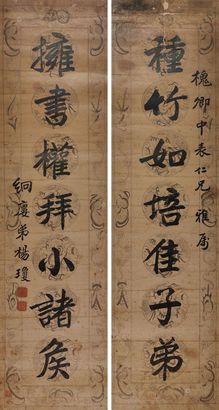 槐卿中表仁兄雅屬
種竹如培佳子弟
擁書權拜小諸侯
絅慶弟楊瓊